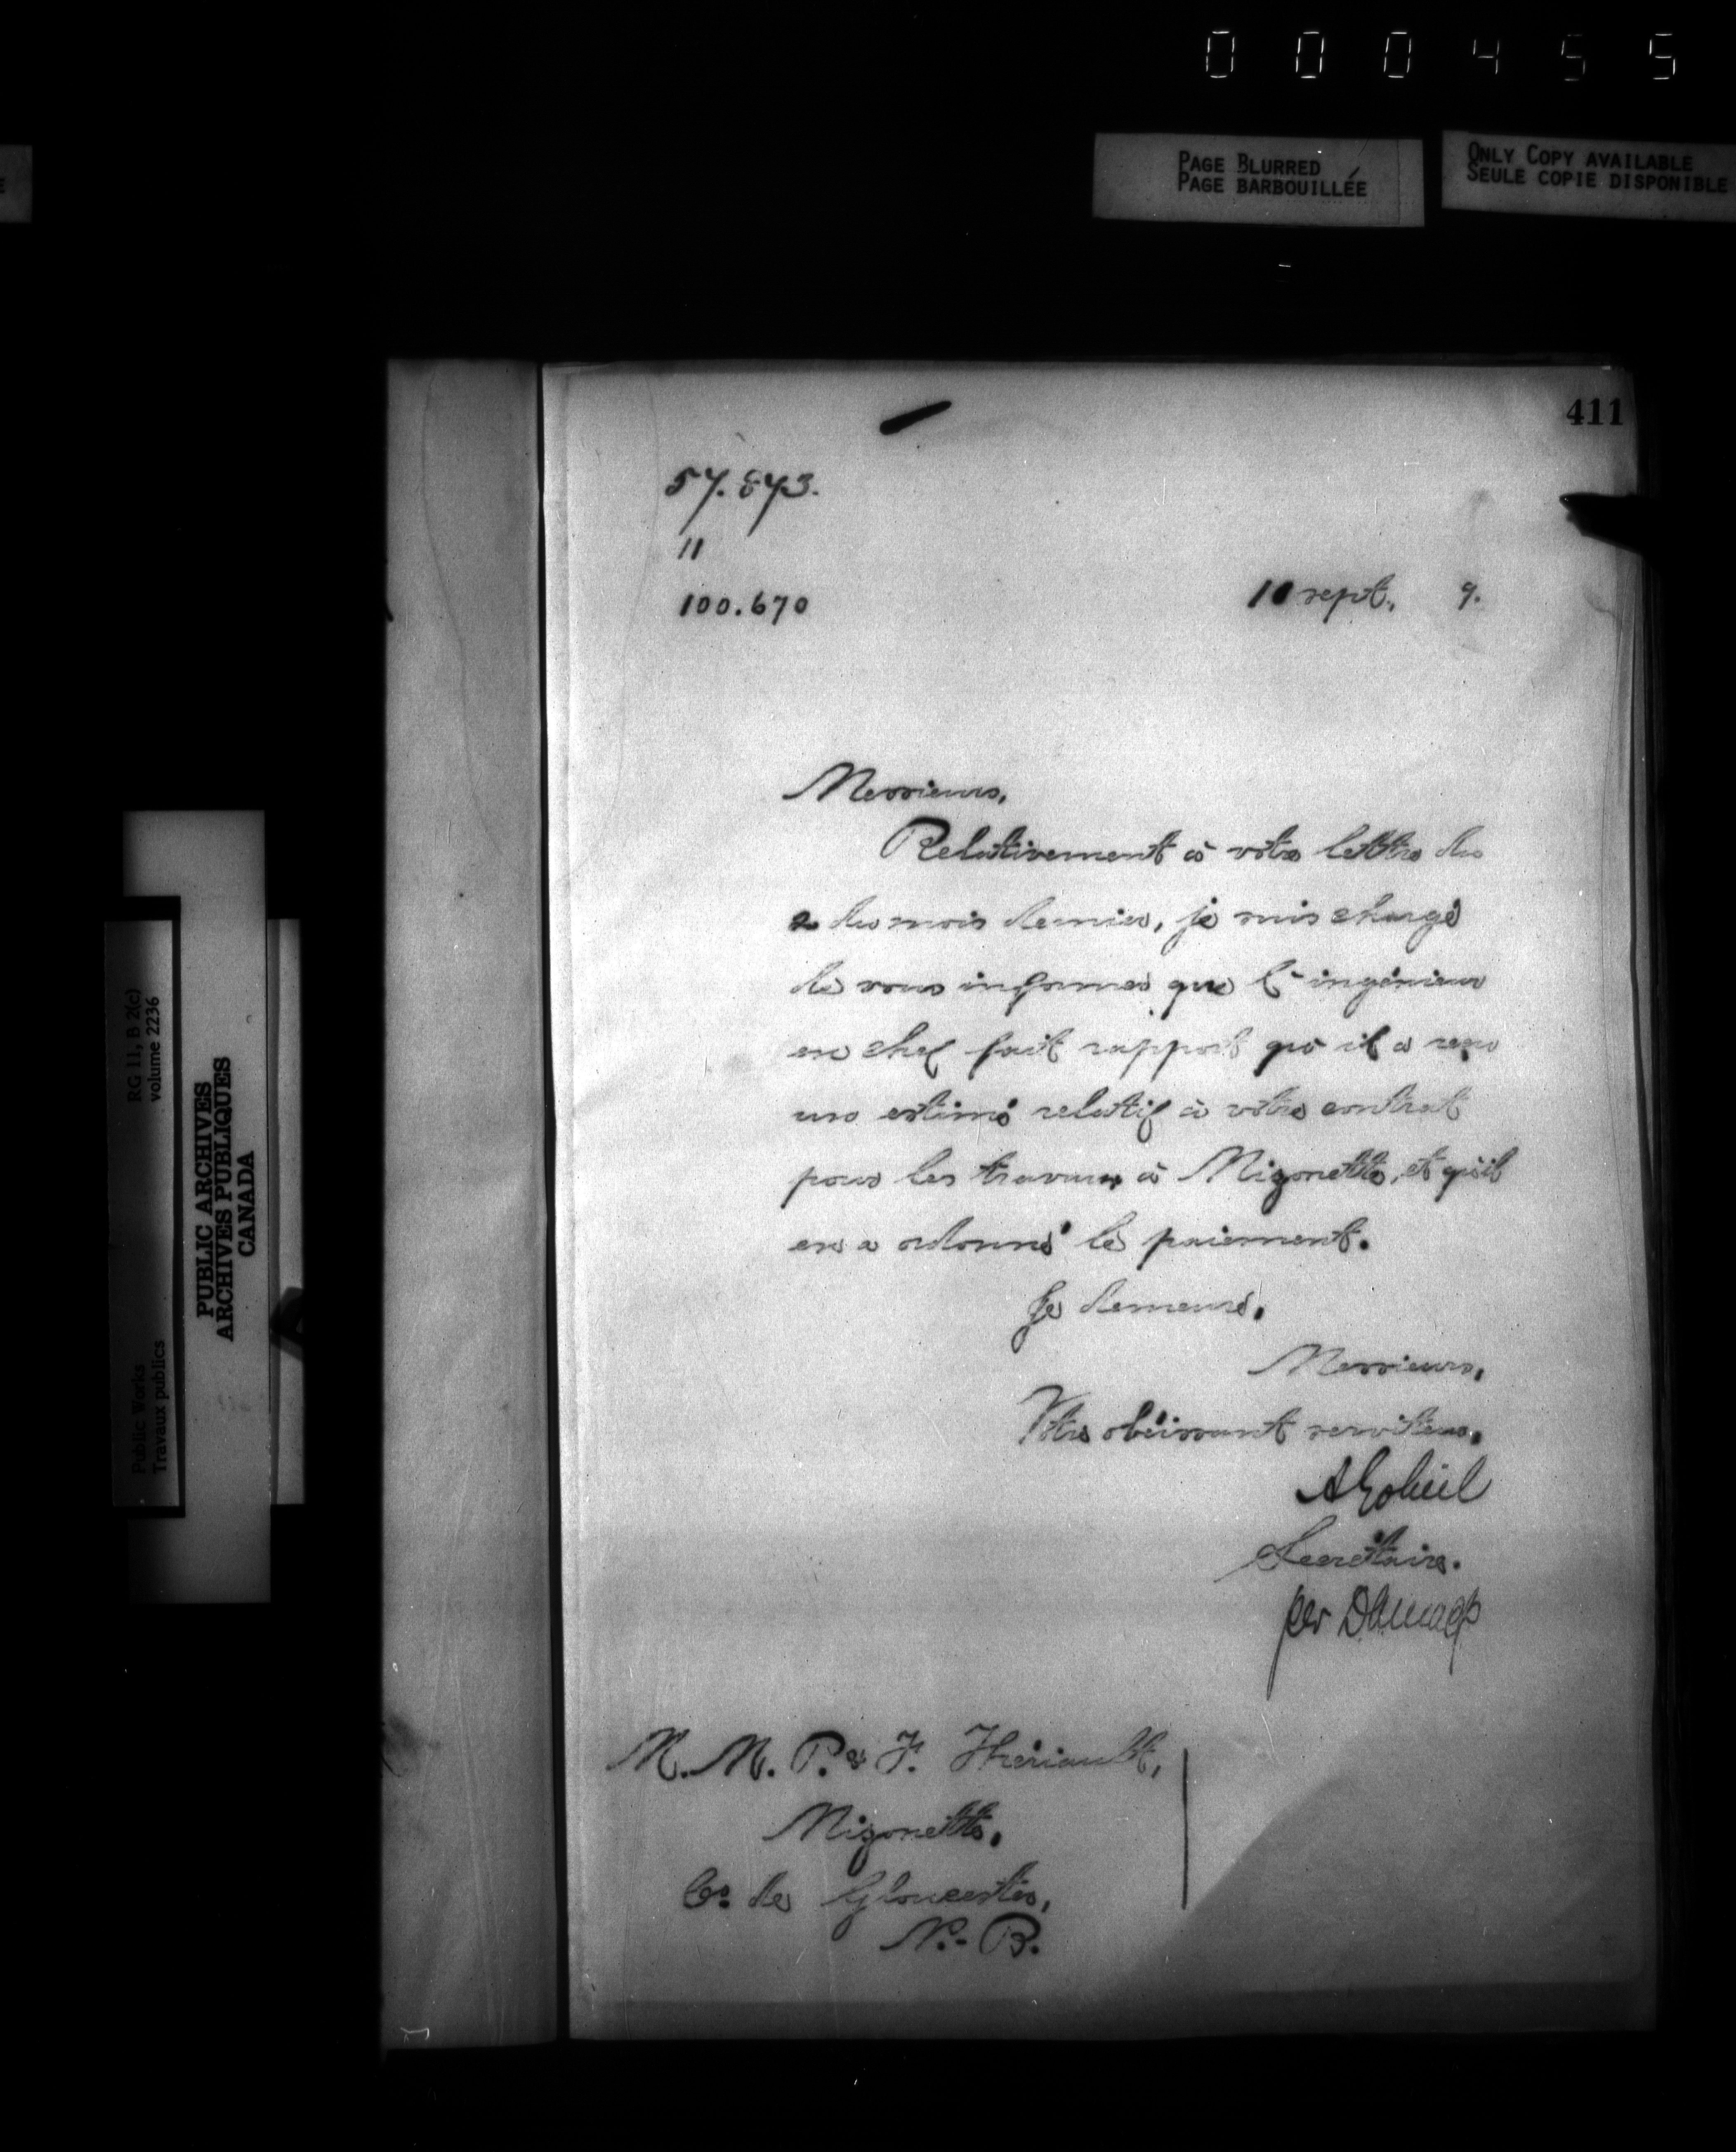 000455
PAGE BLURRED
PAGE BARBOUILLÉE
ONLY COPY AVAILABLE
SEULE COPIE DISPONIBLE
E
411
57.873.
11
100.670
10 sept. 9.
Messieurs,
Relativement à votre lettre du
2 du mois dernier, je suis chargé
de vous informer que l'ingénieur
en chef fait rapport qu'il a reçu
un estimé relatif à votre contrat
pour les travaux à Mizonette, et qu'il
en a ordonné le paiement.
Je demeure,
Messieurs,
Votre obéissant serviteur,
A Gobeil
Secrétaire.
per
M.M. P. & F. Thériault,
Mizonette,
Co. de Gloucester,
N.-B.
RG 11, B 2(c)
volume 2236
PUBLIC ARCHIVES
ARCHIVES PUBLIQUES
CANADA
Public Works
Travaux publics